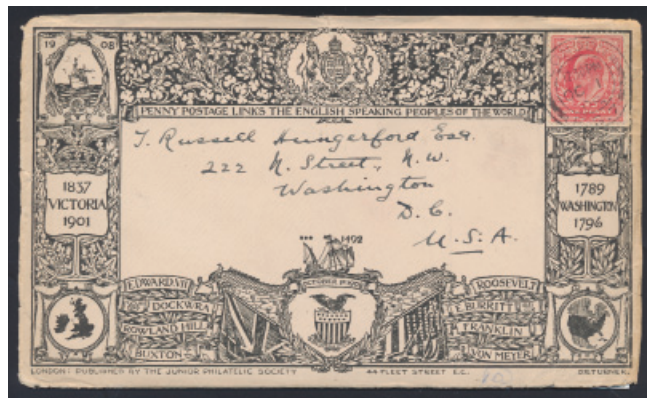 19 08
PENNY POSTAGE LINKS THE ENGLISH SPEAKING PEOPLES OF THE WORLD
J. Russell Hungerford Esq.
222 N. Street, N.W.
Washington
D.C.
U.S.A.
1837
VICTORIA
1901
1789
WASHINGTON
1796
1492
OCTOBER
EDWARD VII
DOCKWRA
ROWLAND HILL
BUXTON
ROOSEVELT
E. BURRITT
FRANKLIN
VON MEYER
LONDON: PUBLISHED BY THE JUNIOR PHILATELIC SOCIETY 44 FLEET STREET E.C.